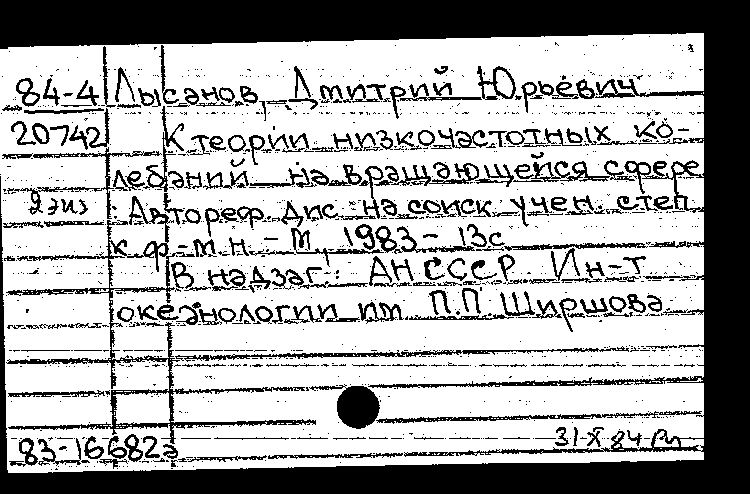 84-4 Лысанов, Дмитрий Юрьевич
20742 К теории низкочастотных ко-
лебаний на вращающейся сфере
2 экз : Автореф дис на соиск учен. степ
к ф-м.н. - М, 1983 - 13с
В надзаг: АН СССР Ин-т
океанологии им П.П Ширшова
83-16682а 31-X 84